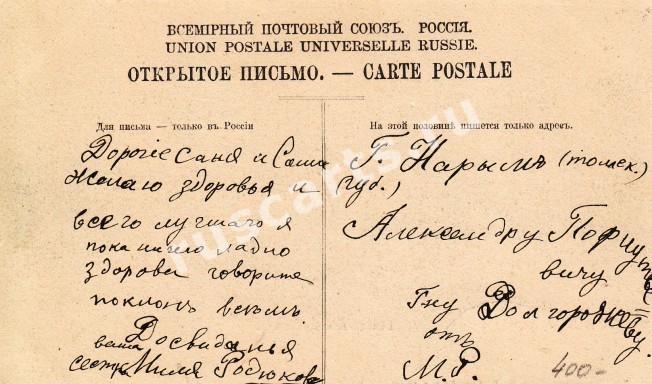 ВСЕМІРНЫЙ ПОЧТОВЫЙ СОЮЗЪ. РОССІЯ.
UNION POSTALE UNIVERSELLE RUSSIE.
ОТКРЫТОЕ ПИСЬМО. — CARTE POSTALE
Для письма — только въ Россіи
Дорогіе Саня и Саша
Желаю здоровья и
всего лучшаго я
пока живу ладно
здорова говорите
поклонъ всемъ.
Досвиданья
ваша
сестра Миля
На этой половинѣ пишется только адресъ.
Г. Нарымъ (томск.
губ.)
Александру Пафнуть
вичу
Гну Долгорукову.
отъ
М.Р.
400-
ruscarts.ru